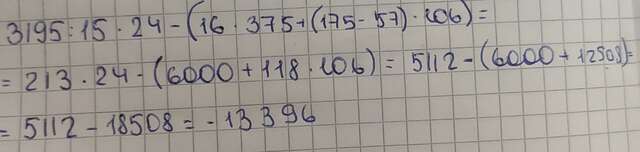 3195:15·24-(16·375+(175-57)·106)=
=213·24-(6000+118·106)=5112-(6000+12508)=
=5112-18508=-13396